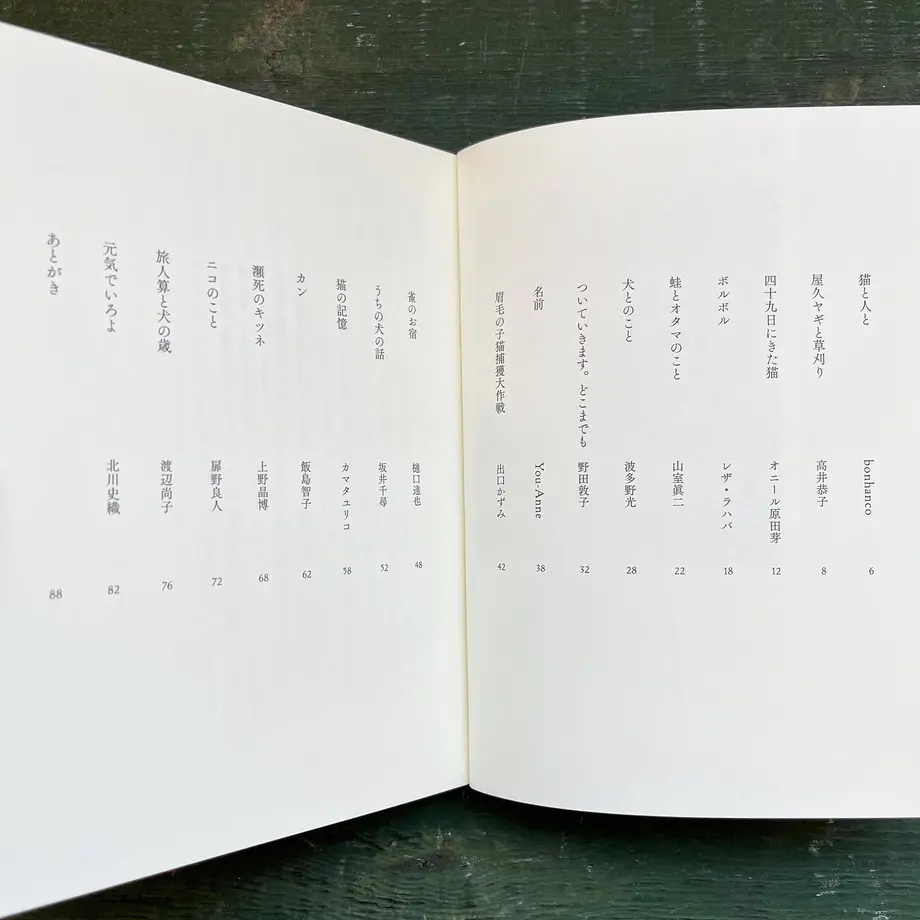 猫と人と bonhanco 6
屋久ヤギと草刈り 高井恭子 8
四十九日にきた猫 オニール原田芽 12
ボルボル レザ・ラハバ 18
蛙とオタマのこと 山室眞二 22
犬とのこと 波多野光 28
ついていきます。どこまでも 野田敦子 32
名前 You-Anne 38
眉毛の子猫捕獲大作戦 出口かずみ 42
雀のお宿 樋口達也 48
うちの犬の話 坂井千尋 52
猫の記憶 カマタユリコ 58
カン 飯島智子 62
瀕死のキツネ 上野晶博 68
ニコのこと 扉野良人 72
旅人算と犬の歳 渡辺尚子 76
元気でいろよ 北川史織 82
あとがき 88